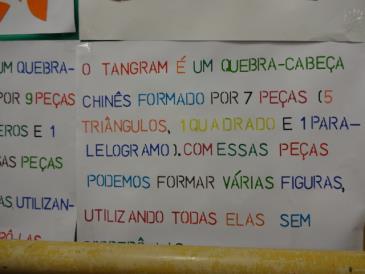 UM QUEBRA-
POR 9 PEÇAS
EROS E 1
SAS PEÇAS
AS UTILIZAN-
O TANGRAM É UM QUEBRA-CABEÇA
CHINÊS FORMADO POR 7 PEÇAS (5
TRIÂNGULOS, 1 QUADRADO E 1 PARA-
LELOGRAMO). COM ESSAS PEÇAS
PODEMOS FORMAR VÁRIAS FIGURAS,
UTILIZANDO TODAS ELAS SEM